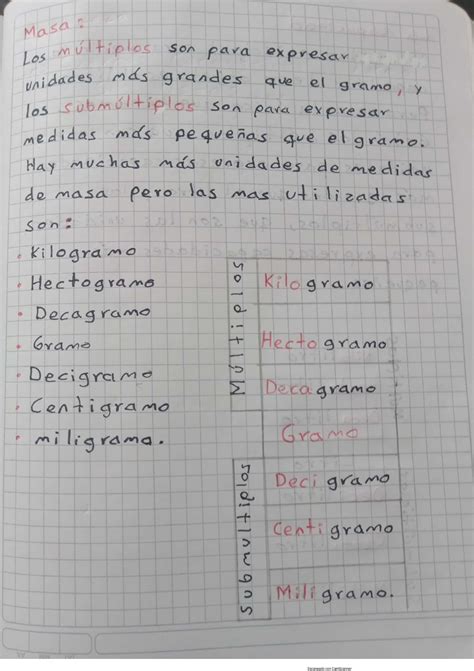 Masa:
Los múltiplos son para expresar
unidades más grandes que el gramo, y
los submúltiplos son para expresar
medidas más pequeñas que el gramo.
Hay muchas más unidades de medidas
de masa pero las mas utilizadas
son:
• Kilogramo
• Hectogramo
• Decagramo
• Gramo
• Decigramo
• Centigramo
• miligramo.
Multiplos
Kilogramo
Hectogramo
Decagramo
Gramo
Submultiplos
Decigramo
Centigramo
Miligramo.
Escaneado con CamScanner